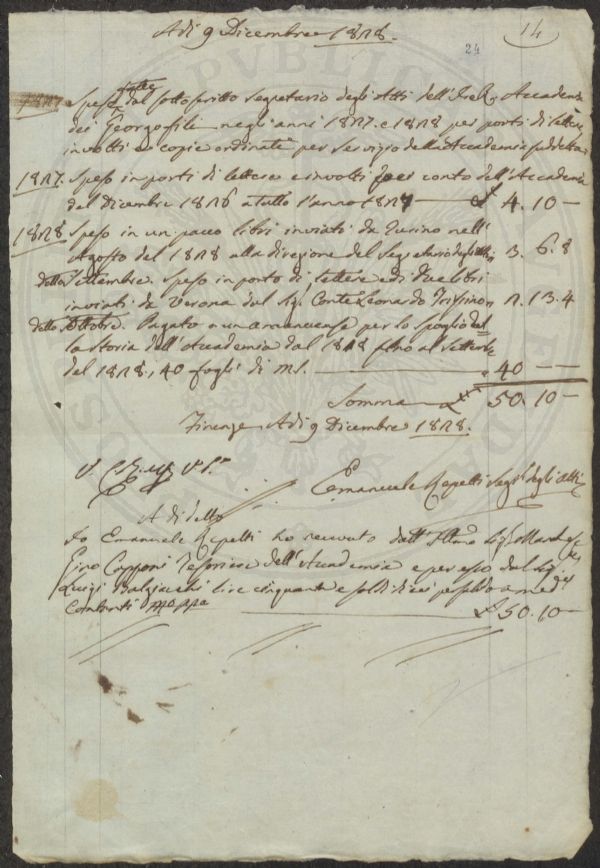 Adì 9 Dicembre 1828.
14
24
fatte
1827 Spese dal sottoscritto Segretario degli Atti dell' I. e R. Accademia
dei Georgofili negli anni 1827. e 1828 per porti di lettere,
involti e copie ordinate per servizio della Accademia suddetta.
1827. Speso in porti di lettere e involti per conto dell' Accademia
dal Dicembre 1826 a tutto l'anno 1827 £ 4. 10 —
1828 Speso in un pacco libri inviati da Torino nell'
Agosto del 1828 alla direzione del Segretario degli Atti 3. 6. 8
detto Settembre. Speso in porto di lettere e di due libri
inviati da Verona dal Sig. Conte Leonardo Trissino 2. 13. 4
detto Ottobre. Pagato a un amanuense per lo spoglio del
la storia dell' Accademia dal 1818 fino al Settembre
del 1828, 40 fogli di ms. 40 — —
Somma £ 50. 10 —
Firenze Adì 9 Dicembre 1828.
Emanuele Repetti Seg. degli Atti
Adì detto
Io Emanuele Repetti ho ricevuto dall' Illmo Sig. Marchese
Gino Capponi Tesoriere dell' Accademia e per esso dal Sig.
Luigi lire cinquanta e soldi dieci
contanti £ 50. 10 —